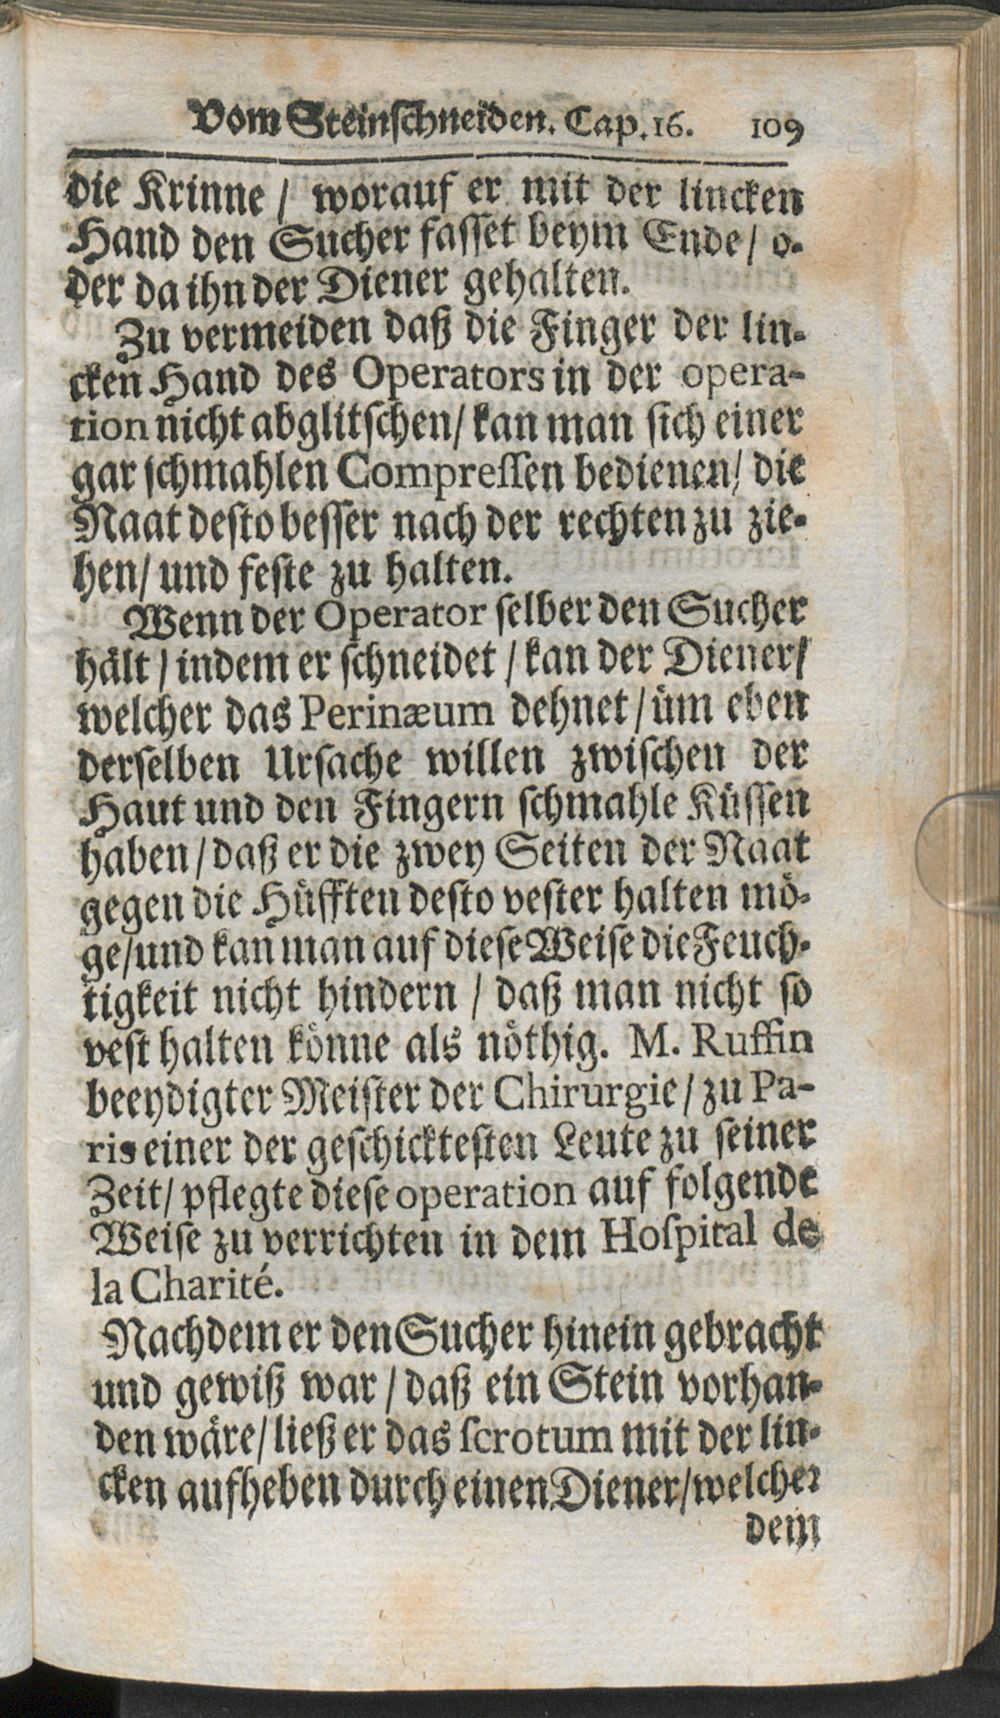 Vom Steinschneiden. Cap. 16. 109
die Krinne / worauf er mit der lincken
Hand den Sucher fasset beym Ende / o-
der da ihn der Diener gehalten.
Zu vermeiden daß die Finger der lin-
cken Hand des Operators in der opera-
tion nicht abglitschen / kan man sich einer
gar schmahlen Compressen bedienen / die
Naat desto besser nach der rechten zu zie-
hen / und feste zu halten.
Wenn der Operator selber den Sucher
hält / indem er schneidet / kan der Diener /
welcher das Perinæum dehnet / üm eben
derselben Ursache willen zwischen der
Haut und den Fingern schmahle Küssen
haben / daß er die zwey Seiten der Naat
gegen die Hüfften desto vester halten mö-
ge / und kan man auf diese Weise die Feuch-
tigkeit nicht hindern / daß man nicht so
vest halten könne als nöthig. M. Ruffin
beeydigter Meister der Chirurgie / zu Pa-
ris einer der geschicktesten Leute zu seiner
Zeit / pflegte diese operation auf folgende
Weise zu verrichten in dem Hospital de
la Charité.
Nachdem er den Sucher hinein gebracht
und gewiß war / daß ein Stein vorhan-
den wäre / ließ er das scrotum mit der lin-
cken aufheben durch einen Diener / welcher
dem